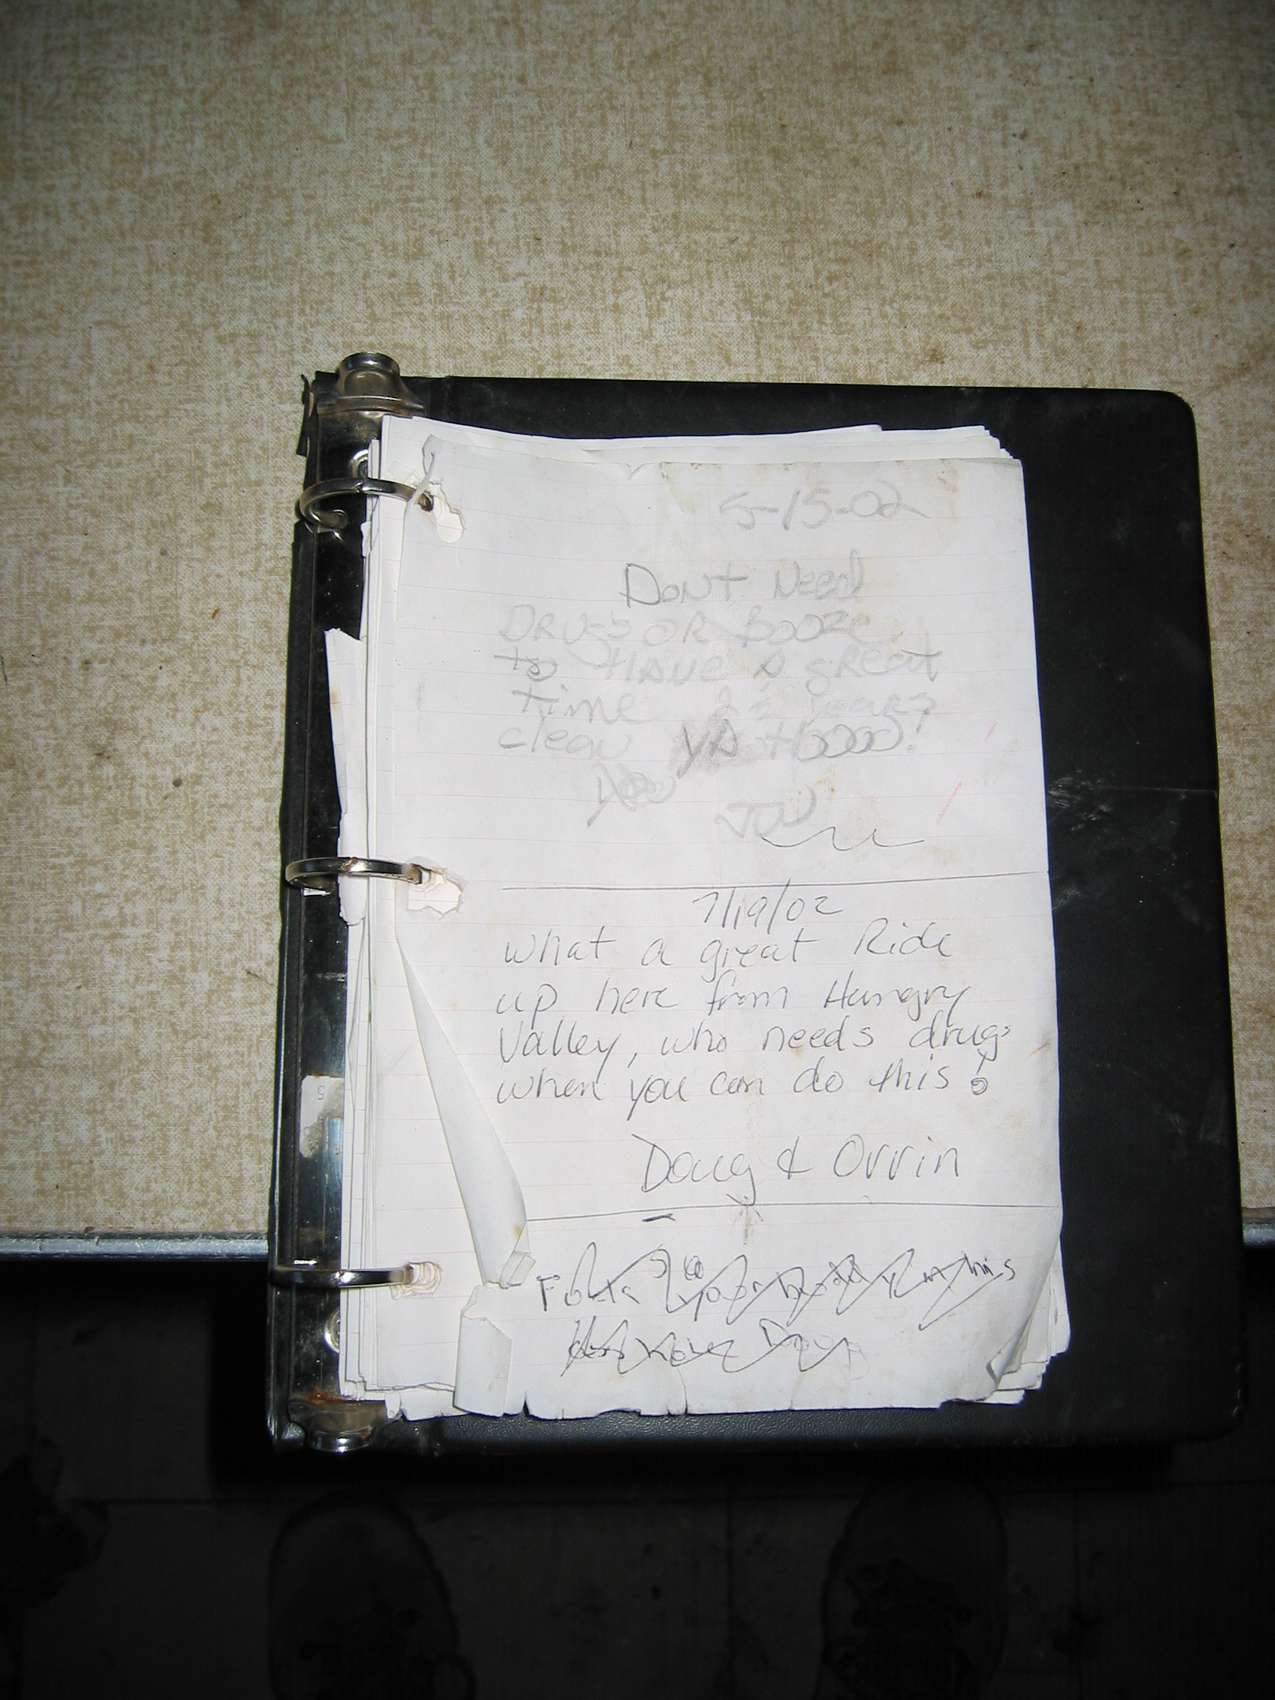 5-15-02
DONT NEED
DRUGS OR BOOZE
to HAVE A gREAt
time years
clean YA HOOOO!
7/19/02
What a great Ride
up here from Hungry
Valley, who needs drugs
when you can do this!
Doug & Orrin